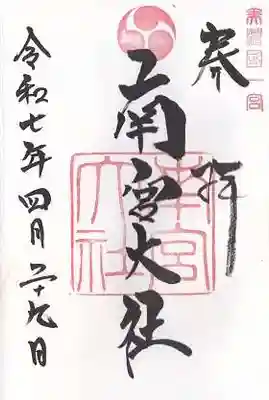 美濃国一宮
奉拝
南宮大社
南宮大社
令和七年四月二十九日